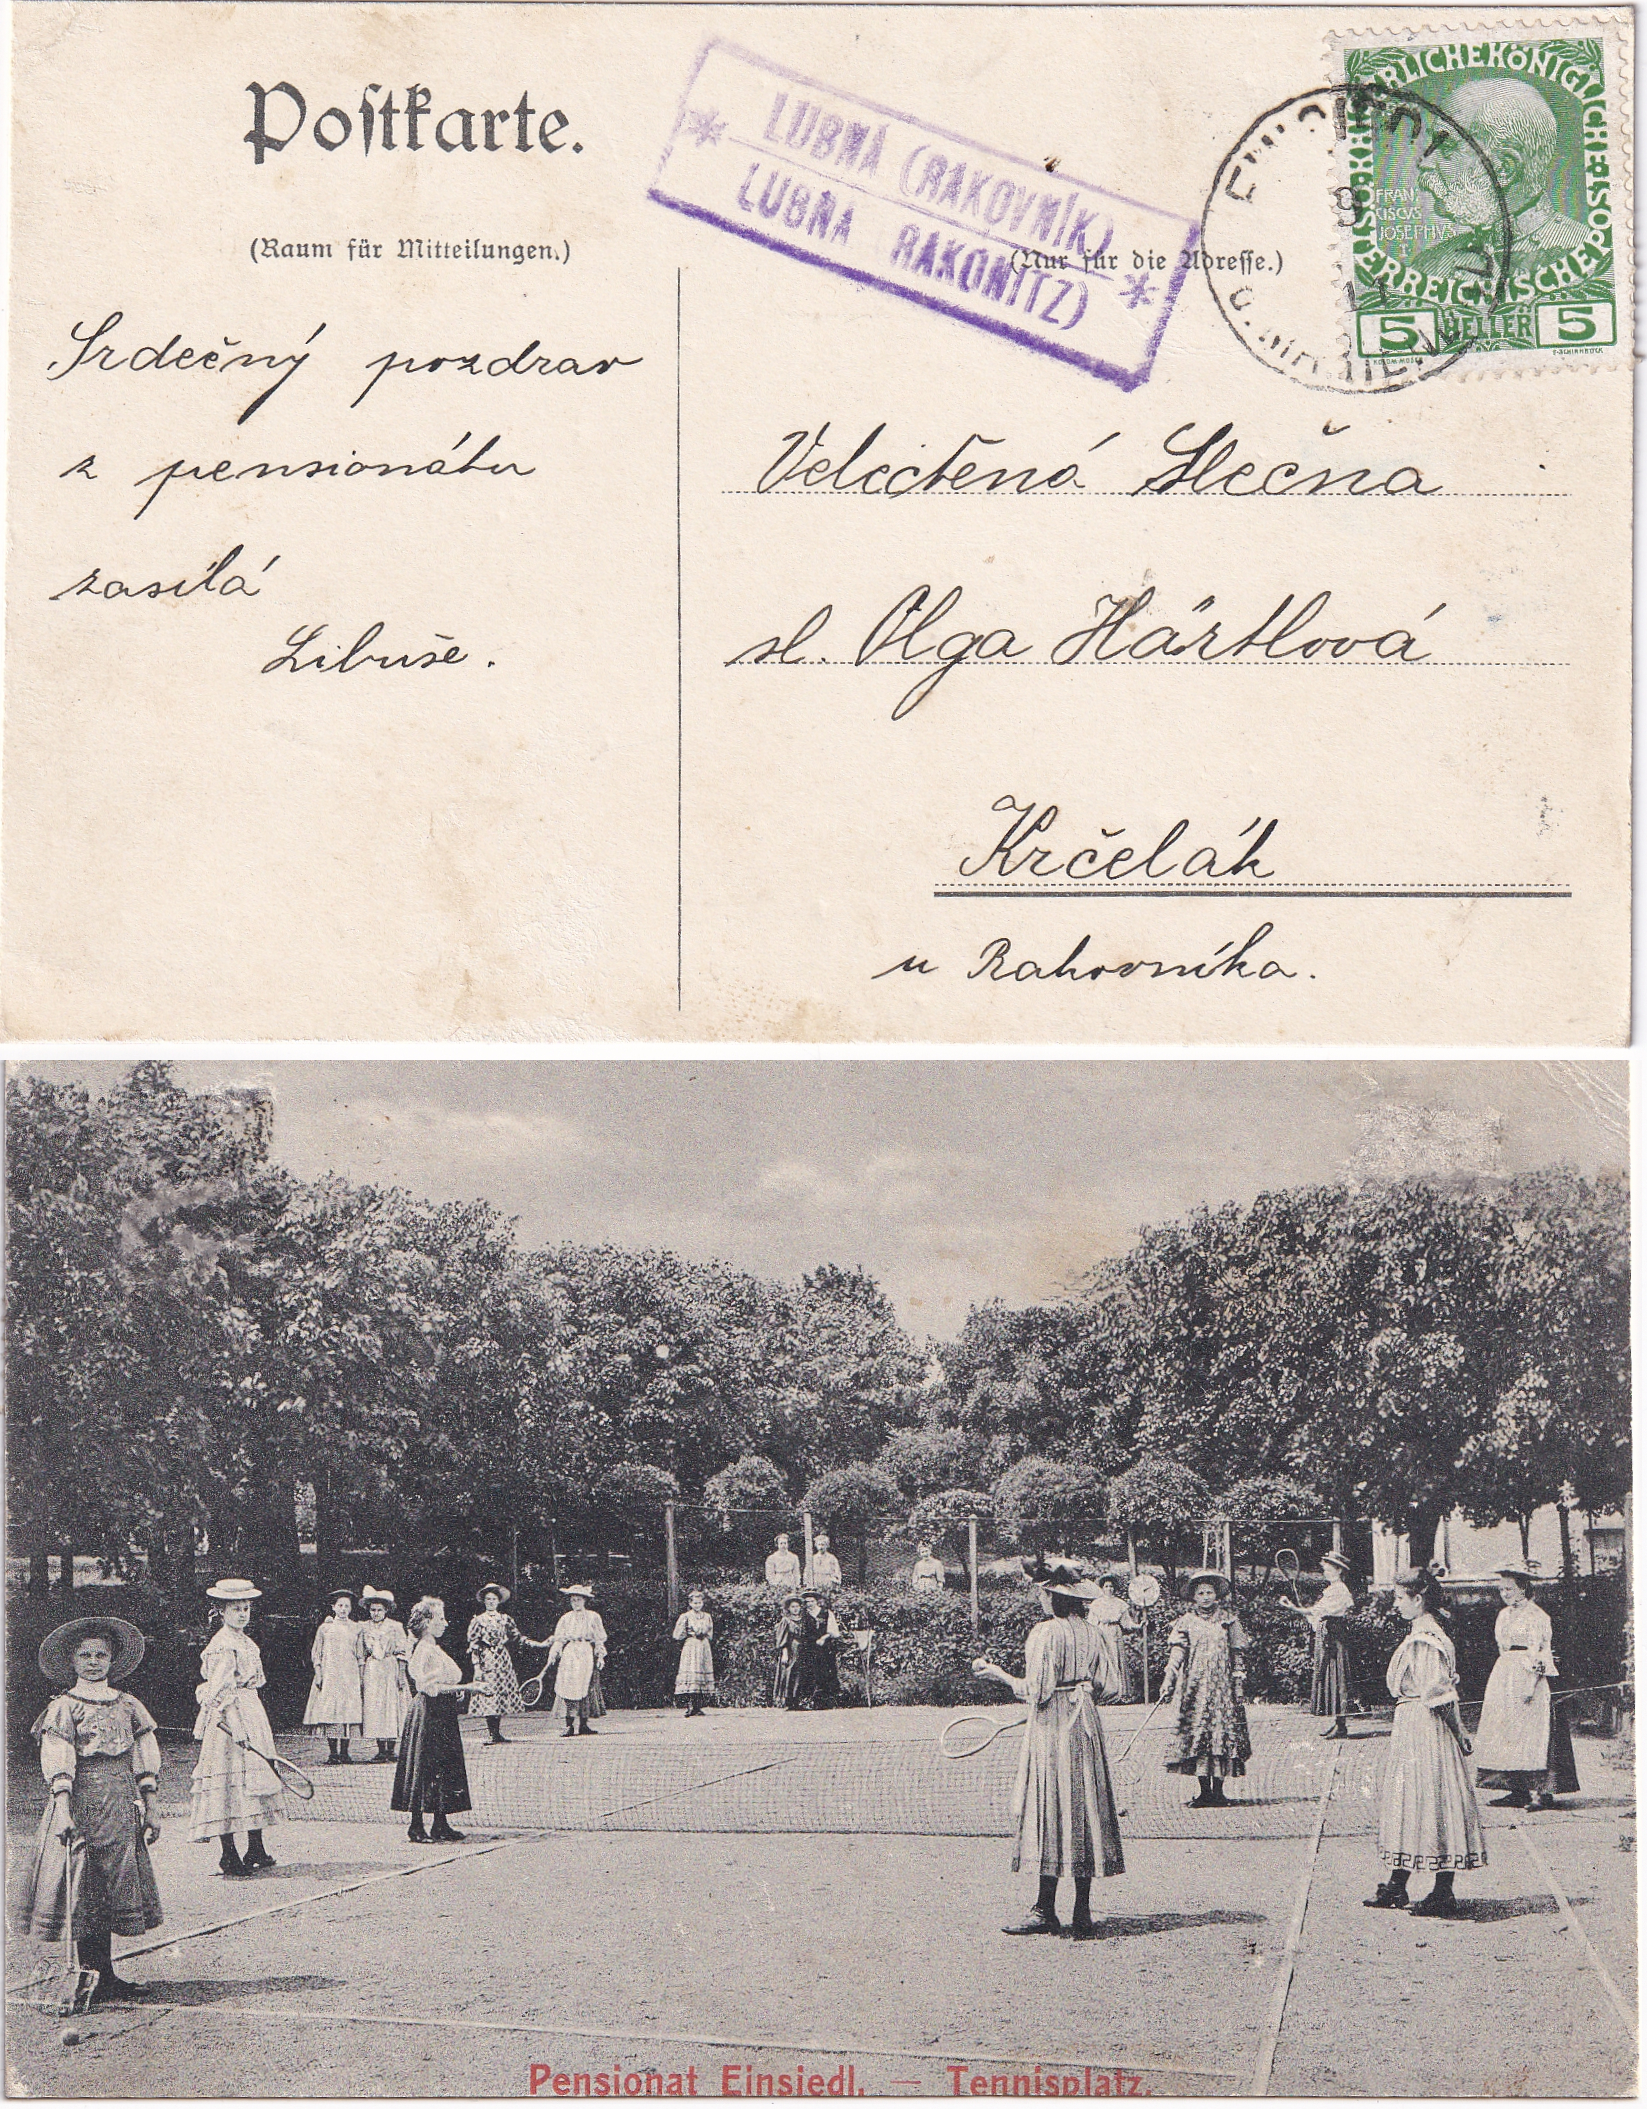 Postkarte.
(Raum für Mitteilungen.)
LUBNÁ (RAKOVNÍK)
* LUBNA RAKONITZ) *
(Nur für die Adresse.)
KAISERLICHE KÖNIGLICHE ÖSTERREICHISCHE POST
FRAN
CISCVS
JOSEPHVS
I.
5 HELLER 5
EINSIEDL
9
11
B. MARIENBAD
Srdečný pozdrav
z pensionátu
zasílá
Libuše.
Velectěná Slečna
sl. Olga Hártlová
Krčelák
u Rakovníka.
Pensionat Einsiedl. — Tennisplatz.